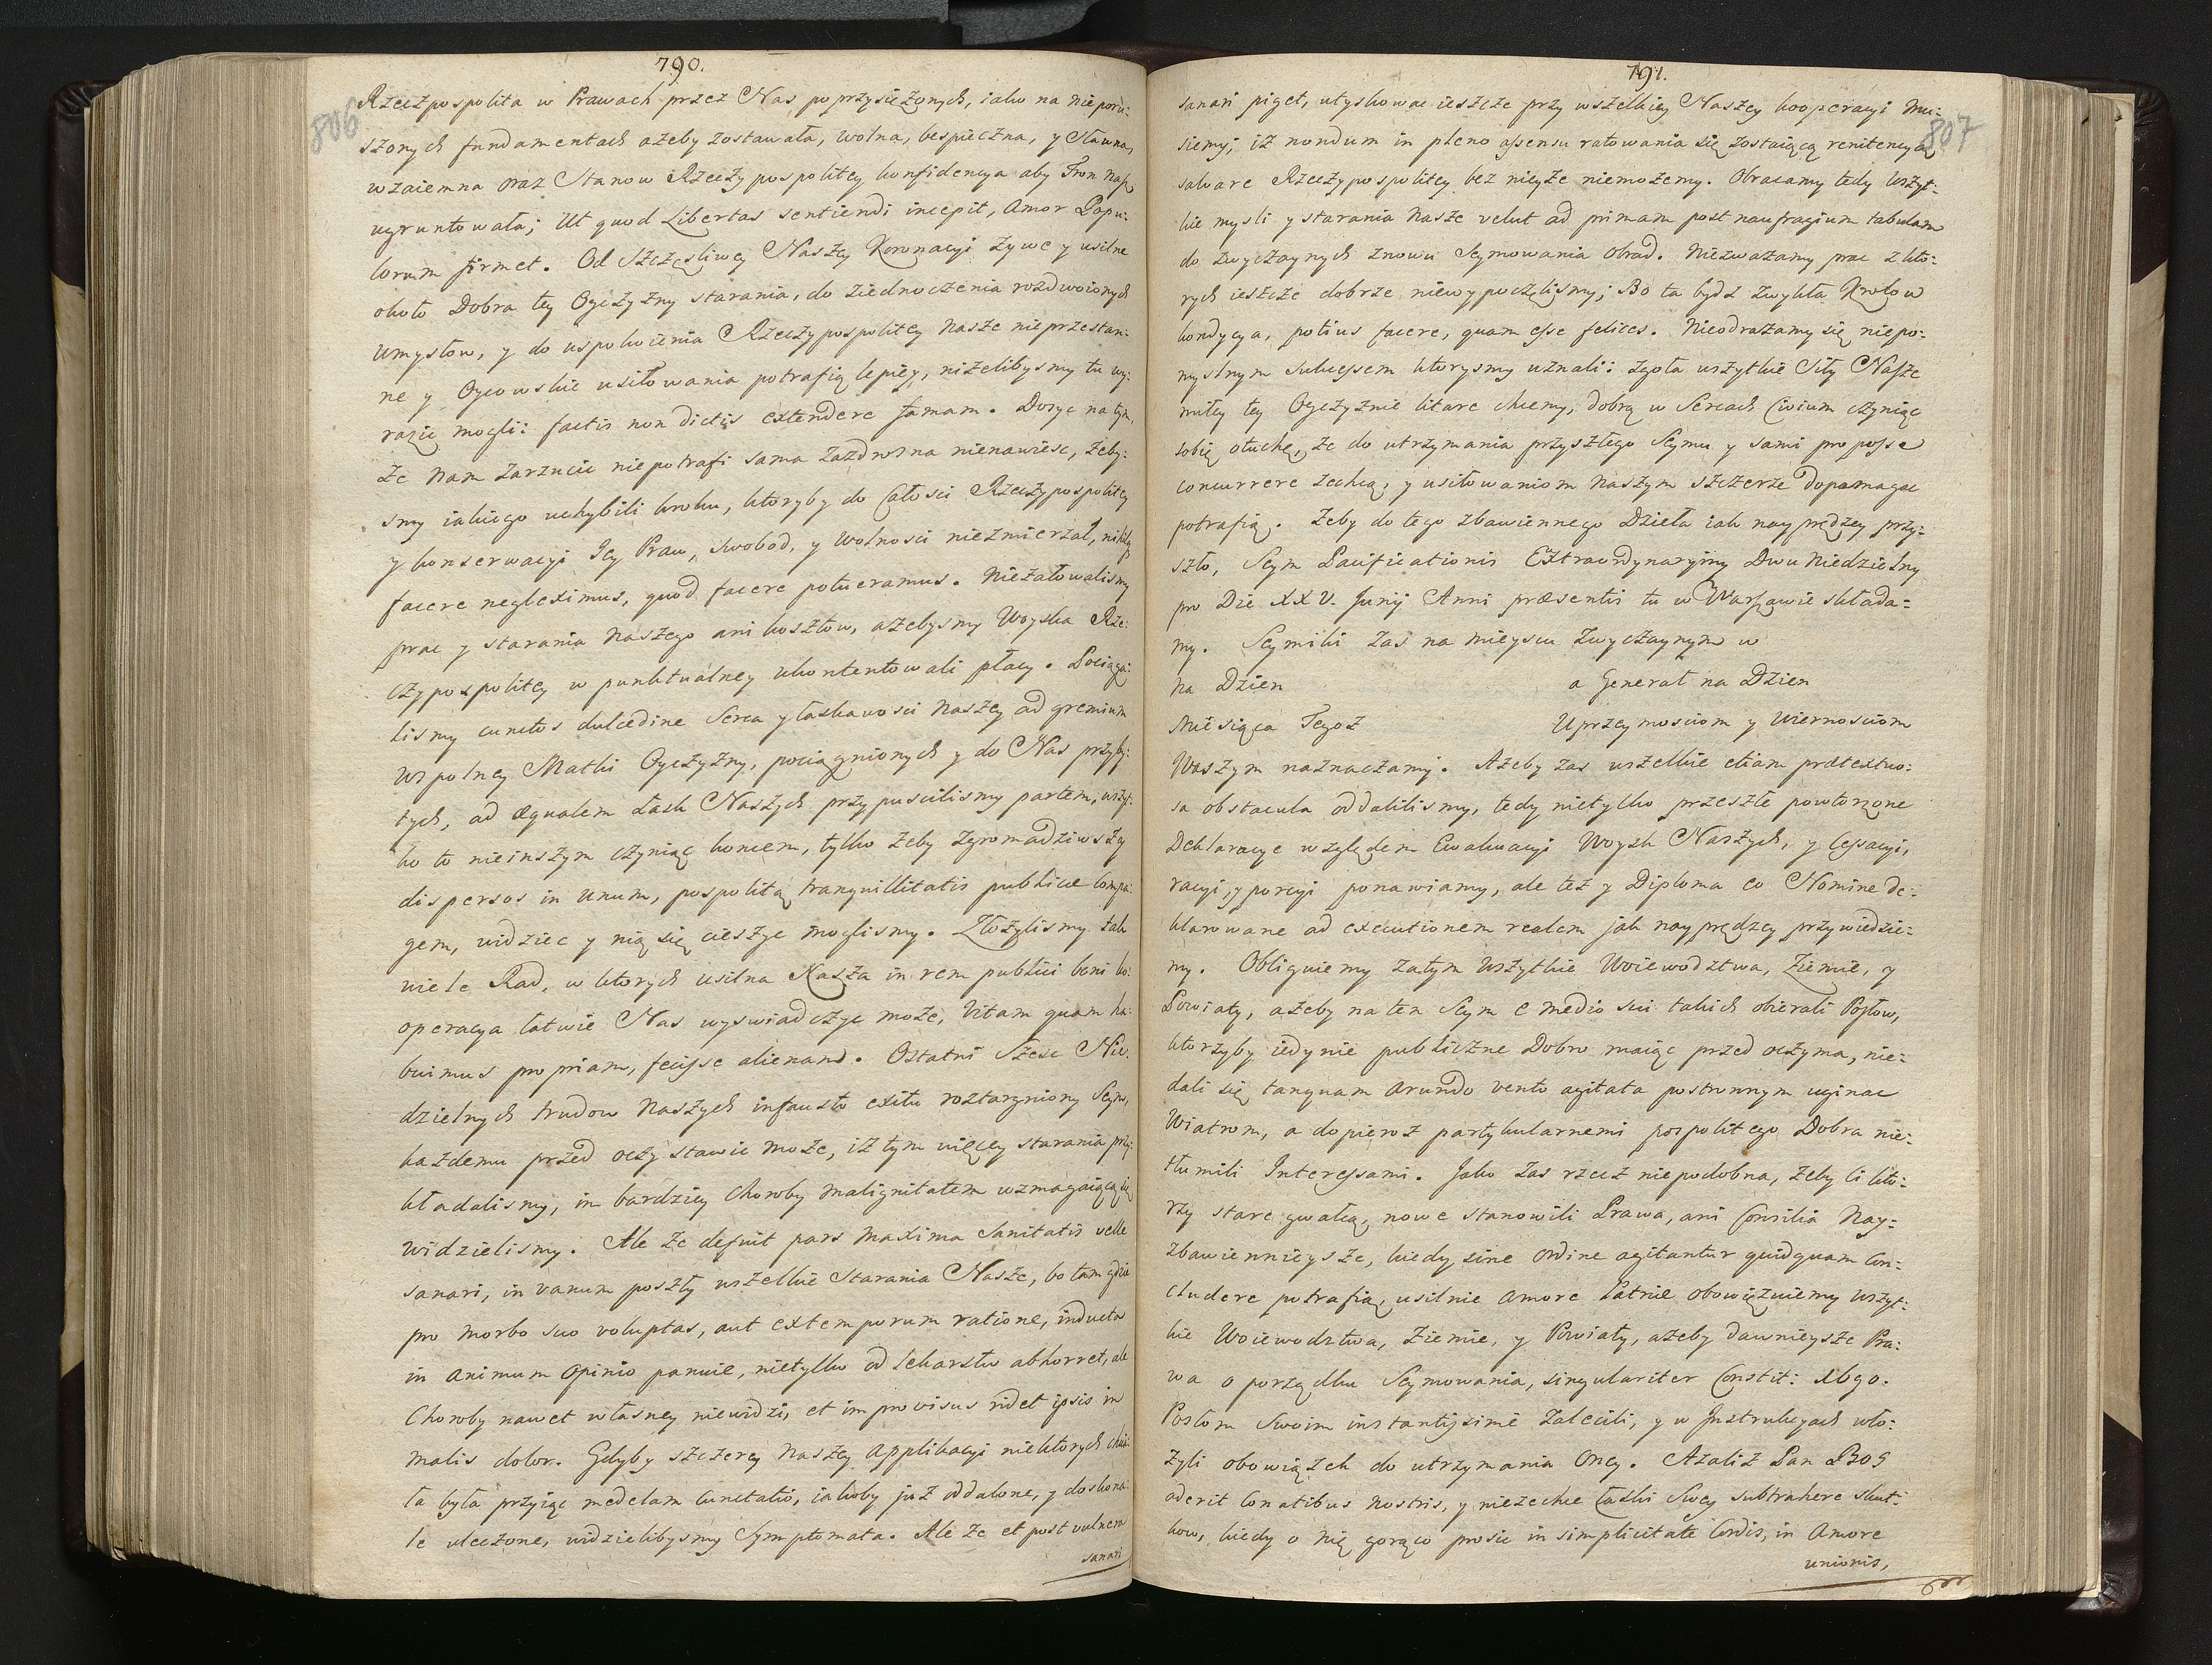 790.
806
Rzeczpospolita w Prawach przez Nas poprzysiężonych, iako na nieporu-
szonych fundamentach ażeby zostawała, wolna, bespieczna, y Sławna,
wzaiemna oraz Stanow Rzeczypospolitey konfidencya aby Tron Nasz
ugruntowała; Ut quod Libertas sentiendi incepit, Amor Popu-
lorum firmet. Od Szczęsliwey Naszey Koronacyi żywe y usilne
około Dobra tey Oyczyzny starania, do ziednoczenia rozdwoionych
Umysłow, y do uspokoienia Rzeczypospolitey Nasze nieprzestan-
ne y Oycowskie usiłowania potrafią lepiey, niżelibysmy tu wy-
razic mogli: factis non dictis extendere famam. Dosyc na tym,
że Nam zarzucic niepotrafi sama zazdrosna nienawisc, żeby-
smy iakiego uchybili kroku, ktoryby do Całosci Rzeczypospolitey
y konserwacyi Jey Praw, swobod, y Wolnosci niezmierzał, nihil
facere negleximus, quod facere potueramus. Nieżałowalismy
prac y starania Naszego ani kosztow, ażebysmy Woyska Rze-
czypospolitey w punktualney ukontentowali płacy. Pociąga-
lismy cunctos dulcedine Serca y łaskawosci Naszey ad gremium
wspolney Matki Oyczyzny, pociągnionych y do Nas przyby-
tych, ad æqualem Łask Naszych przypuscilismy partem, wszyt-
ko to nieinszym czyniąc koncem, tylko żeby zgromadziwszy
dispersos in unum, pospolitą tranquillitatis publicæ compa-
gem, widziec y nią się cieszyc moglismy. Złożylismy tak
wiele Rad, w ktorych usilna Nasza in rem publici boni ko-
operacya łatwie Nas wyswiadczyc może, Vitam quam ha-
buimus propriam, fecisse alienam. Ostatni Szesc Nie-
dzielnych trudow Naszych infausto exitu roztargniony Seym,
każdemu przed oczy stawic może, iż tym więcey starania przy-
kładalismy, im bardziey choroby malignitatem wzmagaiącą się
widzielismy. Ale że defuit pars maxima Sanitatis velle
sanari, in vanum poszły wszelkie Starania Nasze, bo tam gdzie
pro morbo suo voluptas, aut extemporum ratione, inducta
in animum opinio panuie, nietylko od lekarstw abhorret, ale
Choroby nawet własney niewidzi, et improvisus ridet ipsis in
malis dolor. Gdyby szczerey Naszey applikacyi niektorych chcia-
ła była przyiąc medelam cunctatio, iakoby już oddalone, y doskona-
le uleczone, widzielibysmy Symptomata. Ale że et post vulnera
sanari
791.
807
sanari piget, utyskowac ieszcze przy wszelkiey Naszey kooperacyi mu-
siemy; iż nondum in pleno assensu ratowania się zostaiącą renitencyą
salvare Rzeczypospolitey bez nieyże niemożemy. Obracamy tedy wszyt-
kie mysli y starania Nasze velut ad primam post naufragium tabulam
do zwyczaynych znowu Seymowania obrad. Niezważamy prac z kto-
rych ieszcze dobrze niewypoczęlismy; Bo ta bydz zwykła Krolow
kondycya, potius facere, quam esse felices. Nieodrażamy się niepo-
myslnym Sukcessem ktorysmy uznali: zgoła wszytkie Siły Nasze
miłey tey Oyczyznie litare chcemy, dobrą w Sercach Civium czyniąc
sobie otuchę, że do utrzymania przyszłego Seymu y sami pro posse
concurrere zechcą, y usiłowaniom Naszym szczerze dopomagac
potrafią. Żeby do tego zbawiennego Dzieła iak nayprędzey przy-
szło, Seym Pacificationis Extraordynaryiny Dwu Niedzielny
pro Die XXV. Junij Anni præsentis tu w Warszawie składa-
my. Seymiki zas na mieyscu zwyczaynym w
na Dzien a Generał na Dzien
Miesiąca Tegoż Uprzeymosciom y Wiernosciom
Waszym naznaczamy. Ażeby zas wszelkie etiam prætextuo-
sa obstacula oddalilismy, tedy nietylko przeszłe powtorzone
Deklaracye względem Ewakuacyi Woysk Naszych, y Cessacyi,
racyi, y porcyi ponawiamy, ale też y Diploma eo Nomine de-
klarowane ad executionem realem jak nayprędzey przywiedzie-
my. Obliguiemy zatym Wszytkie Woiewodztwa, Ziemie, y
Powiaty, ażeby na ten Seym e medio sui takich obierali Posłow,
ktorzyby iedynie publiczne Dobro maiąc przed oczyma, nie-
dali się tanquam arundo vento agitata postronnym uginac
Wiatrom, a dopieroż partykularnemi pospolitego Dobra nie-
tłumili Interessami. Jako zas rzecz niepodobna, żeby ci kto-
rzy stare gwałcą, nowe stanowili Prawa, ani Consilia Nay-
zbawiennieysze, kiedy sine ordine agitantur quidquam con-
cludere potrafią, usilnie amore Patriæ obowięzuiemy wszyt-
kie Woiewodztwa, Ziemie, y Powiaty, ażeby dawnieysze Pra-
wa o porządku Seymowania, singulariter Constit: 1690.
Posłom Swoim instantissime zalecili, y w Instrukcyach wło-
żyli obowiązek do utrzymania oney. Azaliż Pan BOG
aderit Conatibus nostris, y niezechce Łaski Swey subtrahere skut-
kow, kiedy o nię gorąco prosic in simplicitate Cordis, in Amore
unionis,